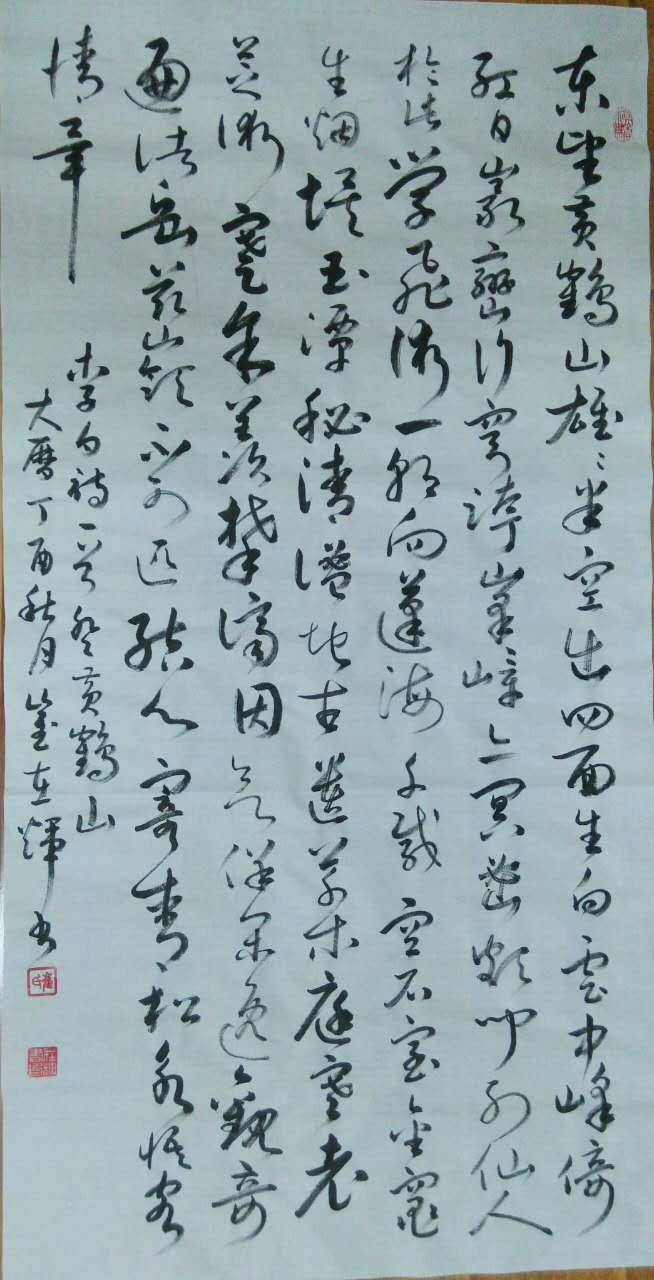 东望黄鹤山雄々半空出四面生白雲中峰倚
红日巖巒行穹跨峯嶂亦冥密颇闻列仙人
於此学飛術一朝向蓬海千载空石室金竈
生烟埃玉潭秘清谧地古遗草木庭寒老
芝術蹇余羨攀躋因欲保闲逸觀奇
遍诸岳兹嶺不可匹结心寄青松永悟客
情畢
李白诗一首登黄鶴山
大曆丁酉秋月崔在輝书